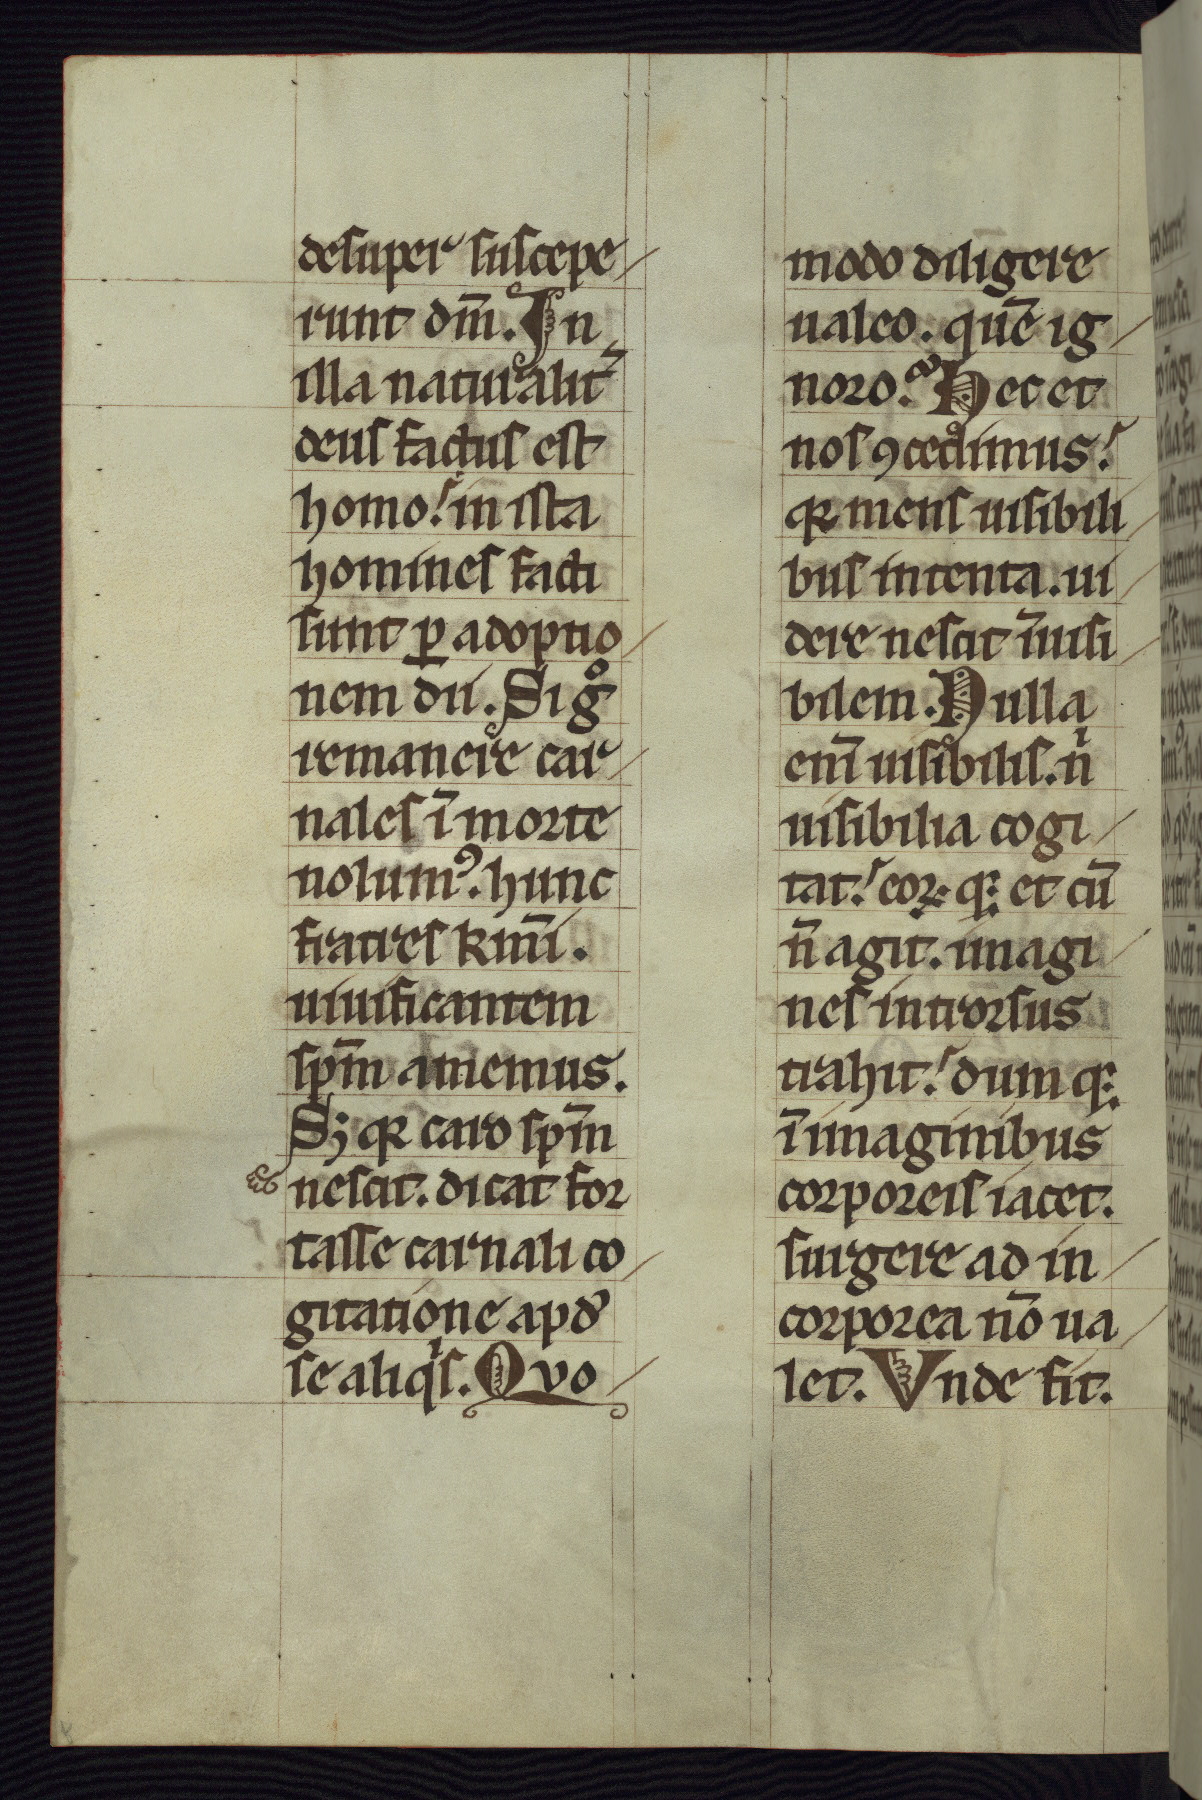 desuper suscepe
runt dm̄. In
illa naturalit᷑
deus factus est
homo. in ista
homines facti
sunt ꝑ adoptio
nem dī. Sigͦ
remanere car
nales ī morte
nolumꝰ. hunc
fratres kr̄mi.
uiuificantem
sp̄m amemus.
Sꝫ qꝛ caro sp̄m
nescit. dicat for
tasse carnali co
gitatione apd̓
se aliqͥs. Quo
modo diligere
ualeo. quē ig
noro. Hec et
nos ꝯcedimus.
qꝛ mens uisibili
bus intenta. ui
dere nescit īuisi
bilem. Nulla
enī uisibilia. n̄
uisibilia cogi
tat. eoꝝ qꝫ et cū
n̄ agit. imagi
nes introrsus
trahit. dum qꝫ
ī imaginibus
corporeis iacet.
surgere ad in
corporea nō ua
let. Vnde fit.